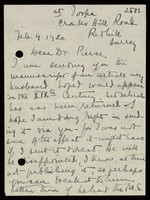 at Toopa 2588
Crakes Hill Road
Redhill
Surrey
Feb. 9. 1920
Dear Dr. Pierce,
I am sending you the
manuscript of an article my
husband hoped would appear
in the XIXth Century but which
has now been returned. I
hope I am doing right in send
ing it via you for I was not
sure of the effect it might have
if I sent it direct. He will
be disappointed, I know, at their
not publishing it so perhaps
you can break it to him
better than if he had the MS